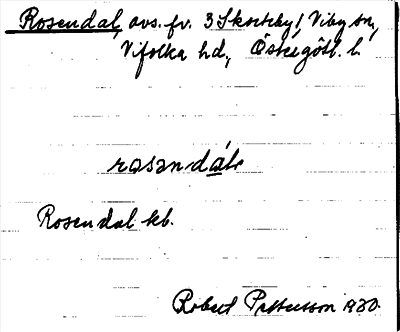 Rosendal, avs. fr. 3 Skorteby, Viby sn,
Vifolka hd, Östergötl. l.
rosəndál
Rosendal kb.
Robert Pettersson 1930.